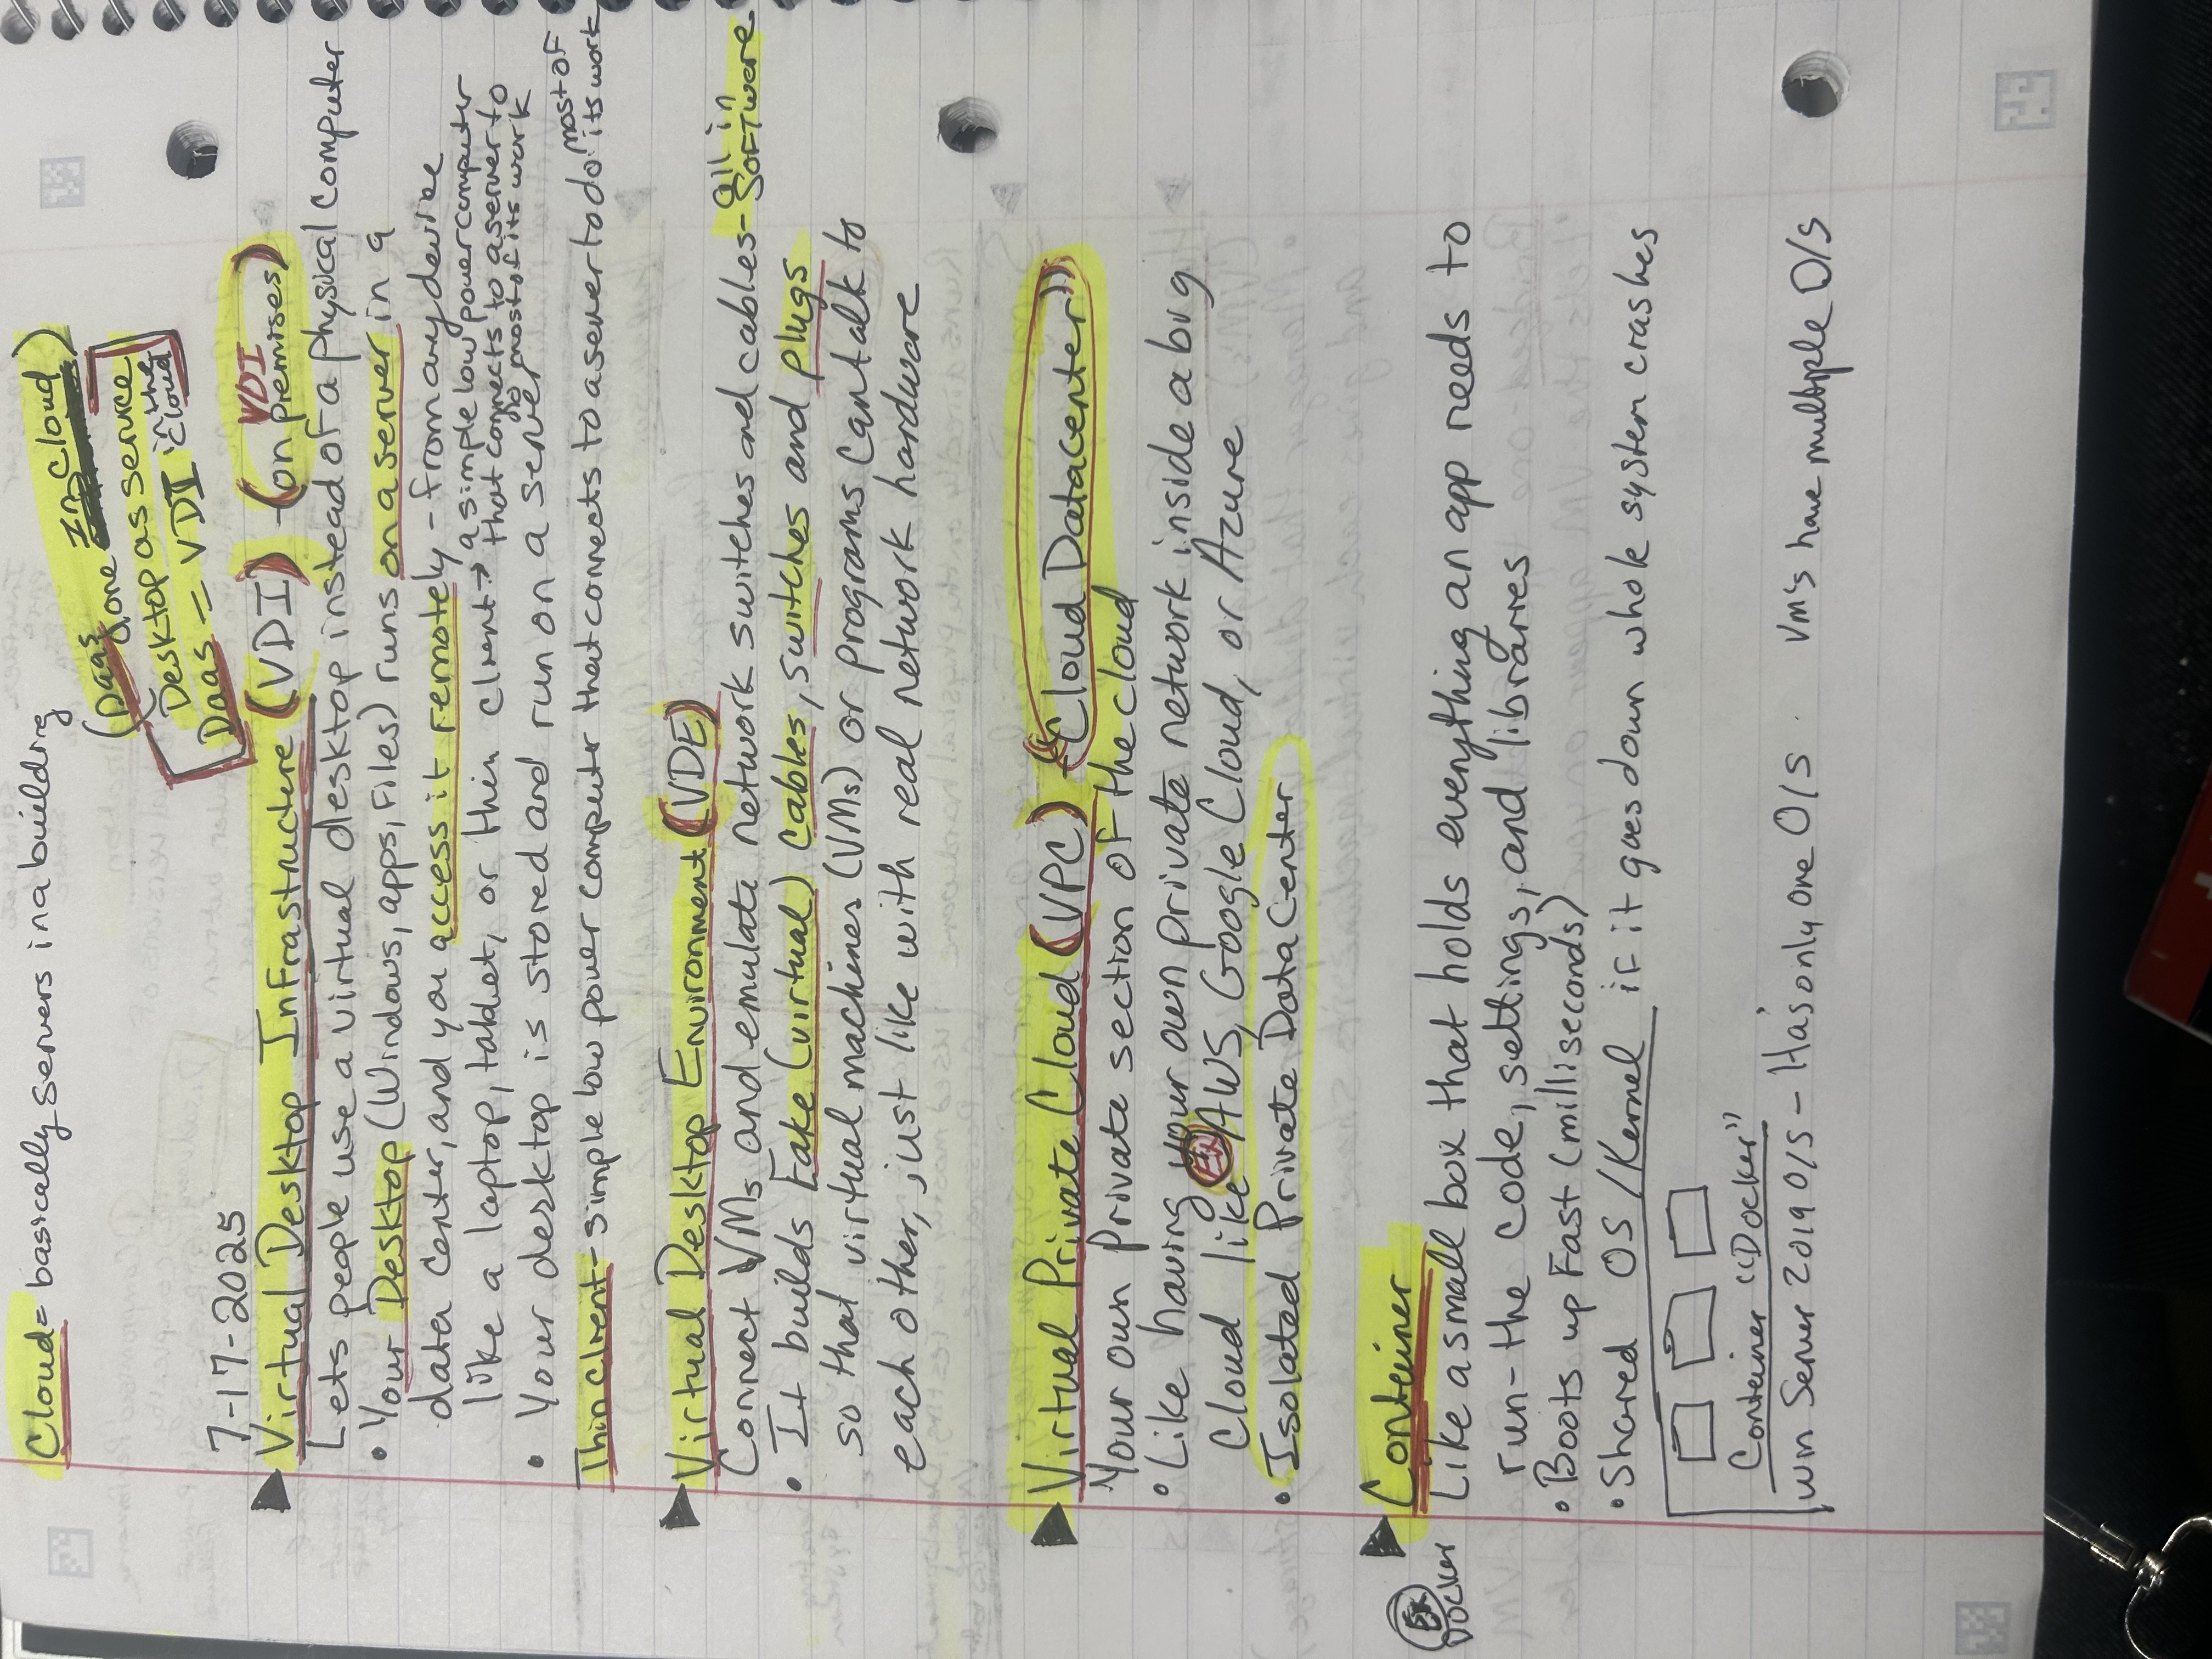 Cloud = basically servers in a building
(Daas done In Cloud)
Desktop as service
Daas = VDI in the Cloud
7-17-2025
Virtual Desktop Infrastructure (VDI) - (VDI on premises)
Lets people use a virtual desktop instead of a physical computer
• Your Desktop (Windows, apps, Files) runs on a server in a
data center, and you access it remotely - from any device
like a laptop, tablet, or thin client → a simple low power computer
that connects to a server to
do most of its work
• Your desktop is stored and run on a server
Thin client - simple low power computer that connects to a server to do most of its work
Virtual Desktop Environment (VDE)
Connect VMs and emulate network switches and cables - all in software
• It builds Fake (virtual) cables, switches and plugs
so that virtual machines (VMs) or programs can talk to
each other, just like with real network hardware
Virtual Private Cloud (VPC) - "Cloud Datacenter"
Your own Private section of the cloud
• Like having your own private network inside a big
Cloud like Ex AWS, Google Cloud, or Azure
• Isolated Private Data Center
Container
Ex
Docker
Like a small box that holds everything an app needs to
run - the code, settings, and libraries
• Boots up Fast (milliseconds)
• Shared OS/Kernel if it goes down whole system crashes
Container "Docker"
Win Server 2019 O/S - Has only one O/S
Vm's have multiple O/S